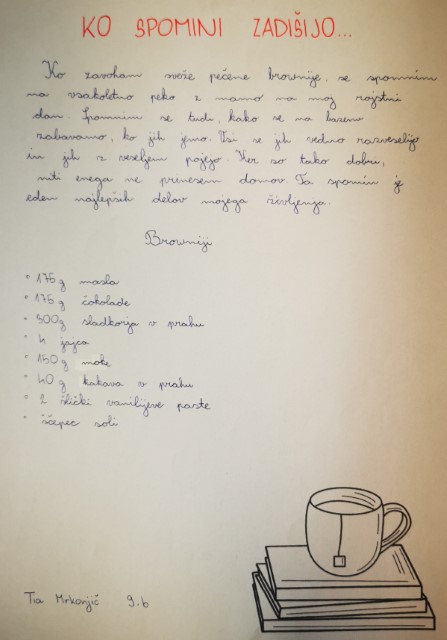 KO SPOMINI ZADIŠIJO...
Ko zavoham sveže pečene brownije, se spomnim
na vsakoletno peko z mamo na moj rojstni
dan. Spomnim se tudi, kako se na bazenu
zabavamo, ko jih jemo. Vsi se jih vedno razveselijo
in jih z veseljem pojejo. Ker so tako dobri,
niti enega ne prenesem domov. Ta spomin je
eden najlepših delov mojega življenja.
Browniji
• 175 g masla
• 175 g čokolade
• 300g sladkorja v prahu
• 4 jajca
• 150 g moke
• 40 g kakava v prahu
• 2 žlički vanilijeve paste
• ščepec soli
Tia Mrkonjič 9. b